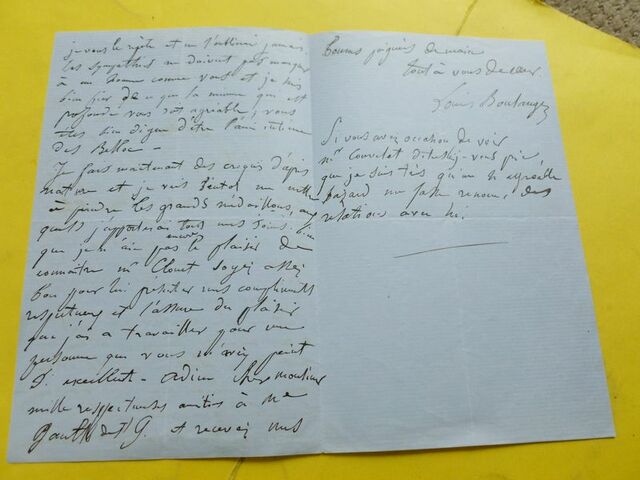 je vous le répète et ne l'oubliez jamais
les sympathies ne doivent pas manquer
à un homme comme vous et je suis
bien fier de ce que la mienne qui est
profonde vous soit agréable, vous
êtes bien digne d'être l'ami intime
des
Je fais maintenant des croquis d'après
nature et je vais bientôt me mettre
à peindre les grands médaillons, aux
quels j'apporterai tous mes soins. bien
que je n'aie pas encore le plaisir de
connaître Mr Clouet soyez assez
bon pour lui présenter mes compliments
respectueux et l'assurer du plaisir
que j'ai à travailler pour une
personne que vous m'avez peint
si excellent - adieu cher monsieur
mille respectueuses amitiés à Me
de G. et recevez mes
bonnes poignées de main
tout à vous de cœur
Louis Boulanger
Si vous avez occasion de voir
Mr dites lui, je vous prie,
que je suis très qu'un
hazard me fasse renouer des
relations avec lui.